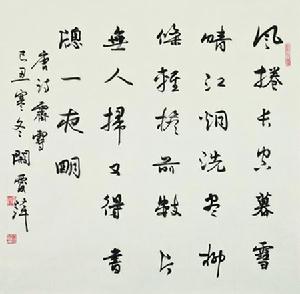 風捲長空暮雪
晴江烟洗盡柳
條輕檐前數片
無人掃又得書
牕一夜明
唐詩霽雪
己丑寒冬